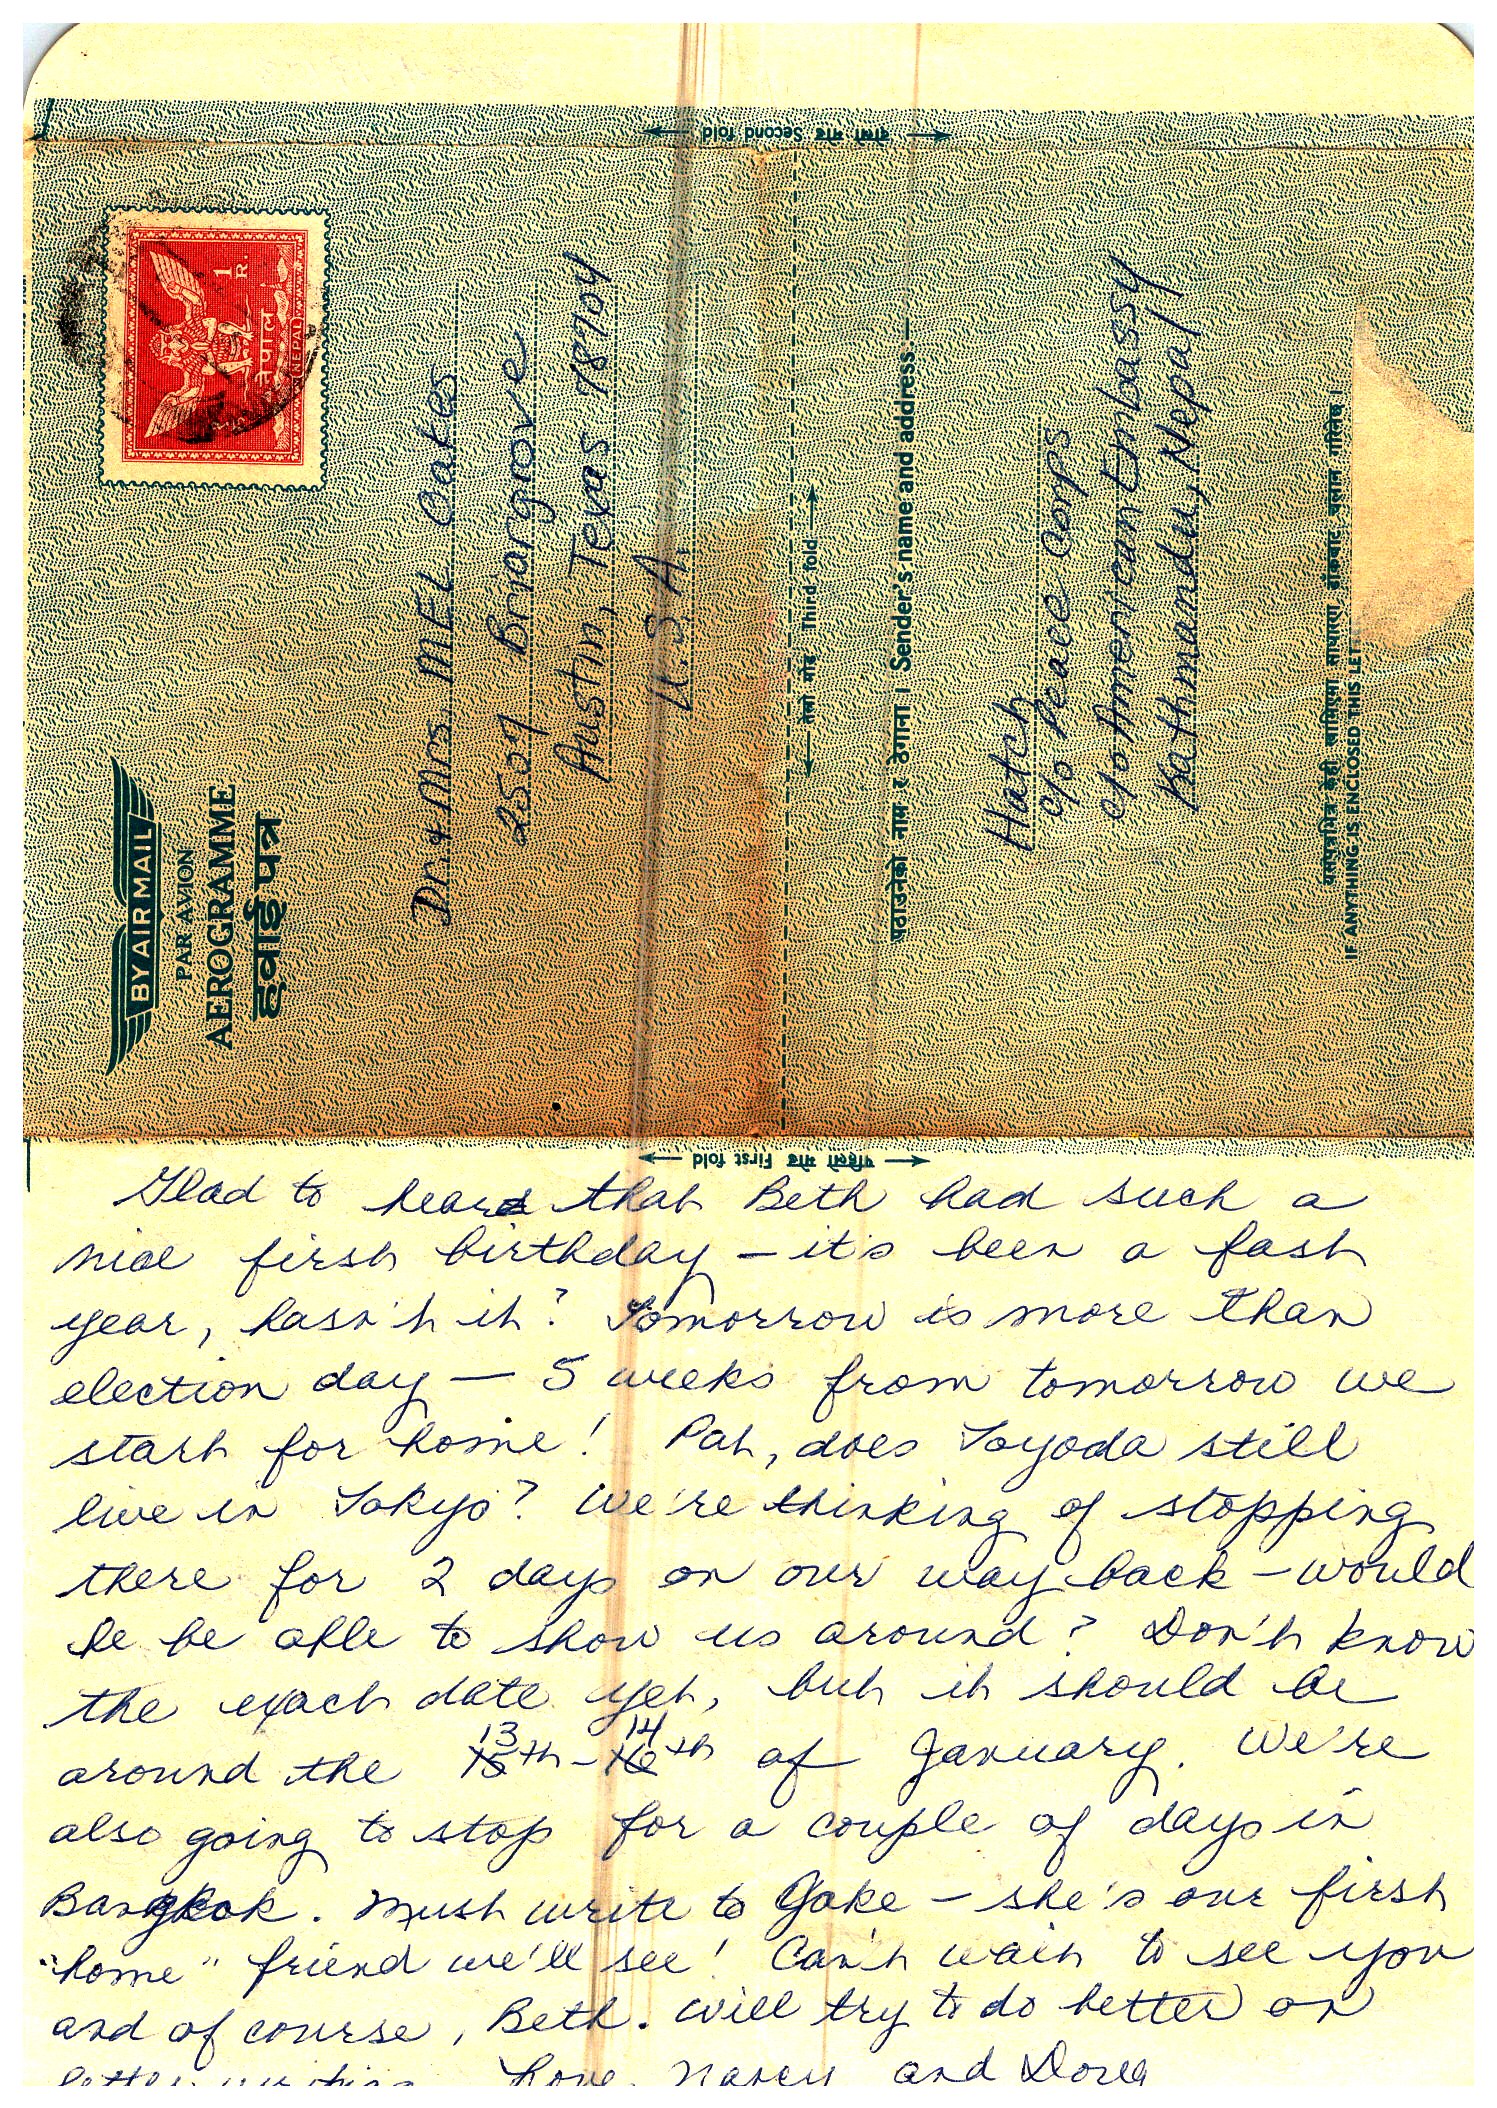 दोस्रो मोड Second fold
1
R.
नेपाल
NEPAL
BY AIR MAIL
PAR AVION
AEROGRAMME
हवाई पत्र
Dr. & Mrs. MEL Oakes
2507 Briargrove
Austin, Texas 78704
U.S.A.
तेस्रो मोड Third fold
पठाउनेको नाम र ठेगाना । Sender's name and address.—
Hatch
c/o Peace Corps
c/o American Embassy
Kathmandu, Nepal
यसपत्रभित्र केही थामिएमा साधारण डाँकबाट चलान गरिनेछ ।
IF ANYTHING IS ENCLOSED THIS LET
पहिलो मोड First fold
Glad to hear that Beth had such a
nice first birthday – it's been a fast
year, hasn't it? Tomorrow is more than
election day – 5 weeks from tomorrow we
start for home! Pat, does Toyoda still
live in Tokyo? We're thinking of stopping
there for 2 days on our way back – would
he be able to show us around? Don't know
the exact date yet, but it should be
around the 13th – 14th of January. We're
also going to stop for a couple of days in
Bangkok. Must write to Jake – she's our first
"home" friend we'll see! Can't wait to see you
and of course, Beth. Will try to do better on
letter writing. Love, Nancy and Doug